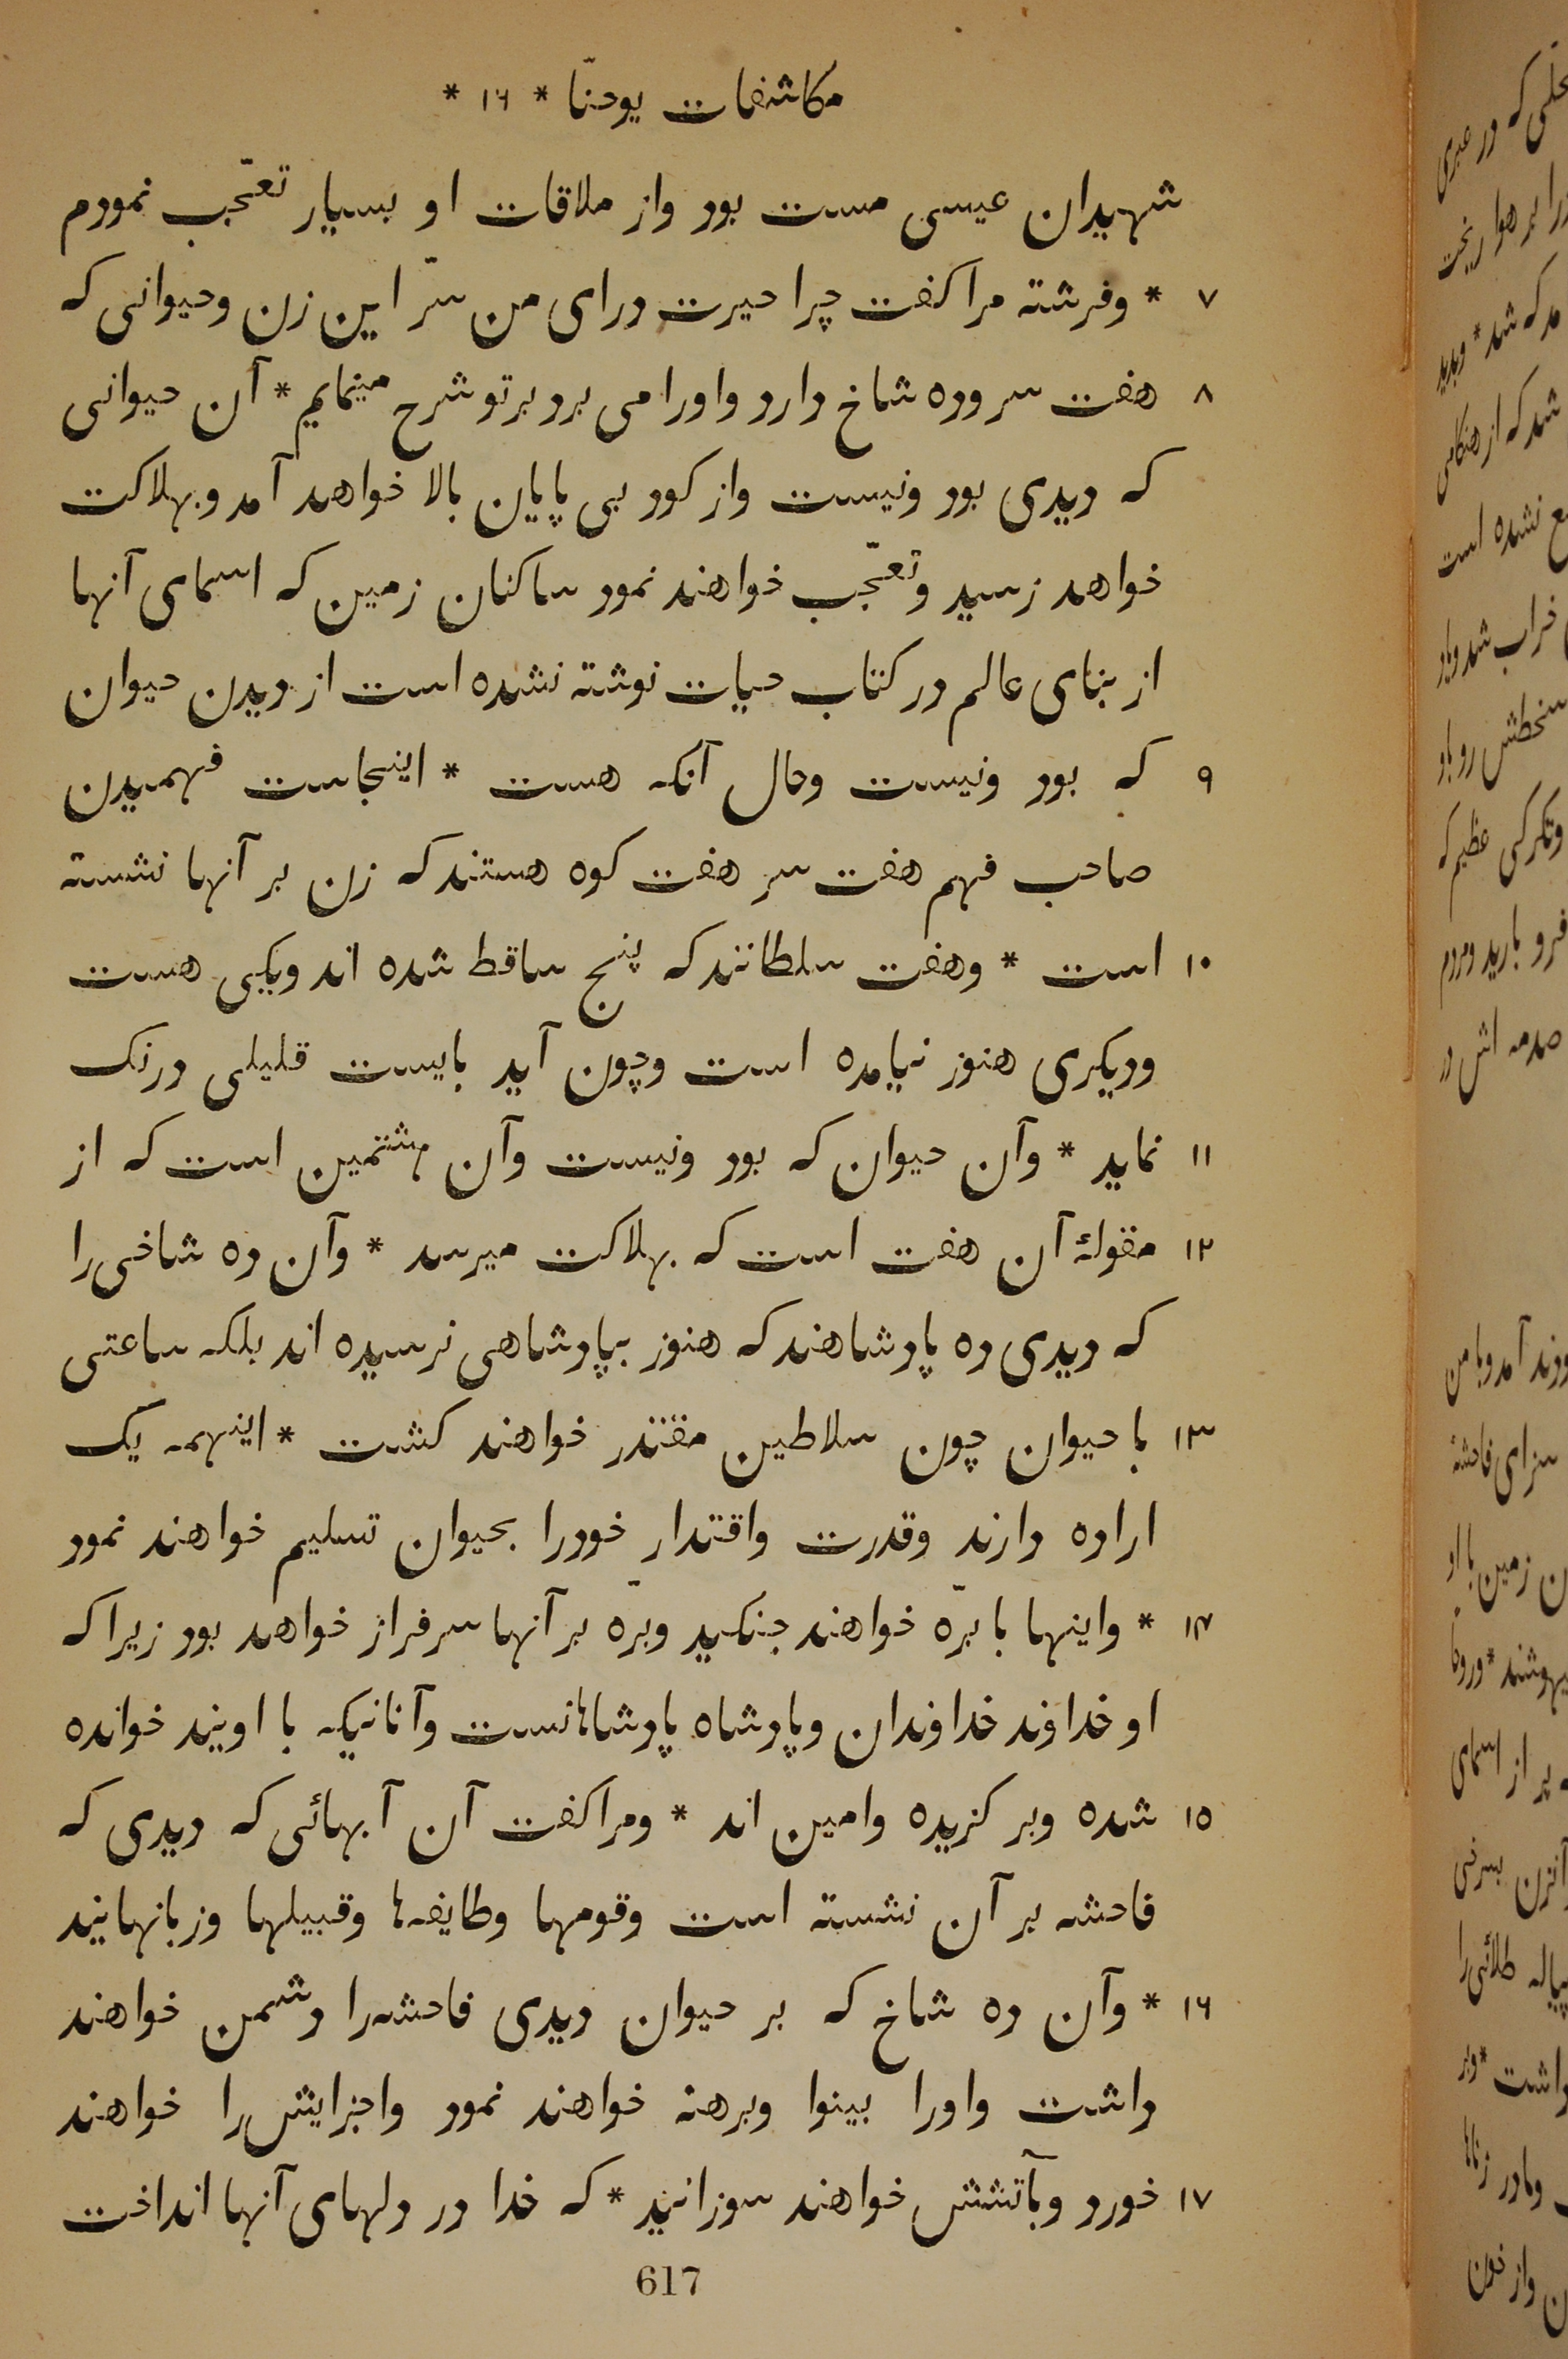 مکاشفات یوحنّا * ١٦ *
شهیدان عیسی مست بود واز ملاقات او بسیار تعجّب نمودم
٧ * وفرشته مرا کفت چرا حیرت درای من سرّ این زن وحیوانی که
٨ هفت سر وده شاخ دارد واورا می برد برتو شرح مینمایم * آن حیوانی
که دیدی بود ونیست واز کود بی پایان بالا خواهد آمد وبهلاکت
خواهد رسید وتعجّب خواهند نمود ساکنان زمین که اسمای آنها
از بنای عالم در کتاب حیات نوشته نشده است از دیدن حیوان
٩ که بود ونیست وحال آنکه هست * اینجاست فهمیدن
صاحب فهم هفت سرِ هفت کوه هستند که زن بر آنها نشسته
١٠ است * وهفت سلطانند که پنج ساقط شده اند ویکیی هست
ودیکری هنوز نیامده است وچون آید بایست قلیلی درنک
١١ نماید * وآن حیوان که بود ونیست وآن هشتمین است که از
١٢ مقولهٔ آن هفت است که بهلاکت میرسد * وآن ده شاخی را
که دیدی ده پادشاهند که هنوز بپادشاهی نرسیده اند بلکه ساعتی
١٣ با حیوان چون سلاطین مقتدر خواهند کشت * اینهمه یک
اراده دارند وقدرت واقتدار خودرا بحیوان تسلیم خواهند نمود
١۴ * واینها با برّه خواهند جنکید وبرّه بر آنها سرفراز خواهد بود زیرا که
او خداوند خداوندان وپادشاه پادشاهانست وآنانیکه با اویند خوانده
١٥ شده وبر کزیده وامین اند * ومرا کفت آن آبهائی که دیدی که
فاحشه بر آن نشسته است وقومها وطایفه‌ها وقبیلها وزبانهایند
١٦ * وآن ده شاخ که بر حیوان دیدی فاحشه‌را دشمن خواهند
داشت واورا بینوا وبرهنه خواهند نمود واجزایش را خواهند
١٧ خورد وبآتشش خواهند سوزانید * که خدا در دلهای آنها انداخت
617